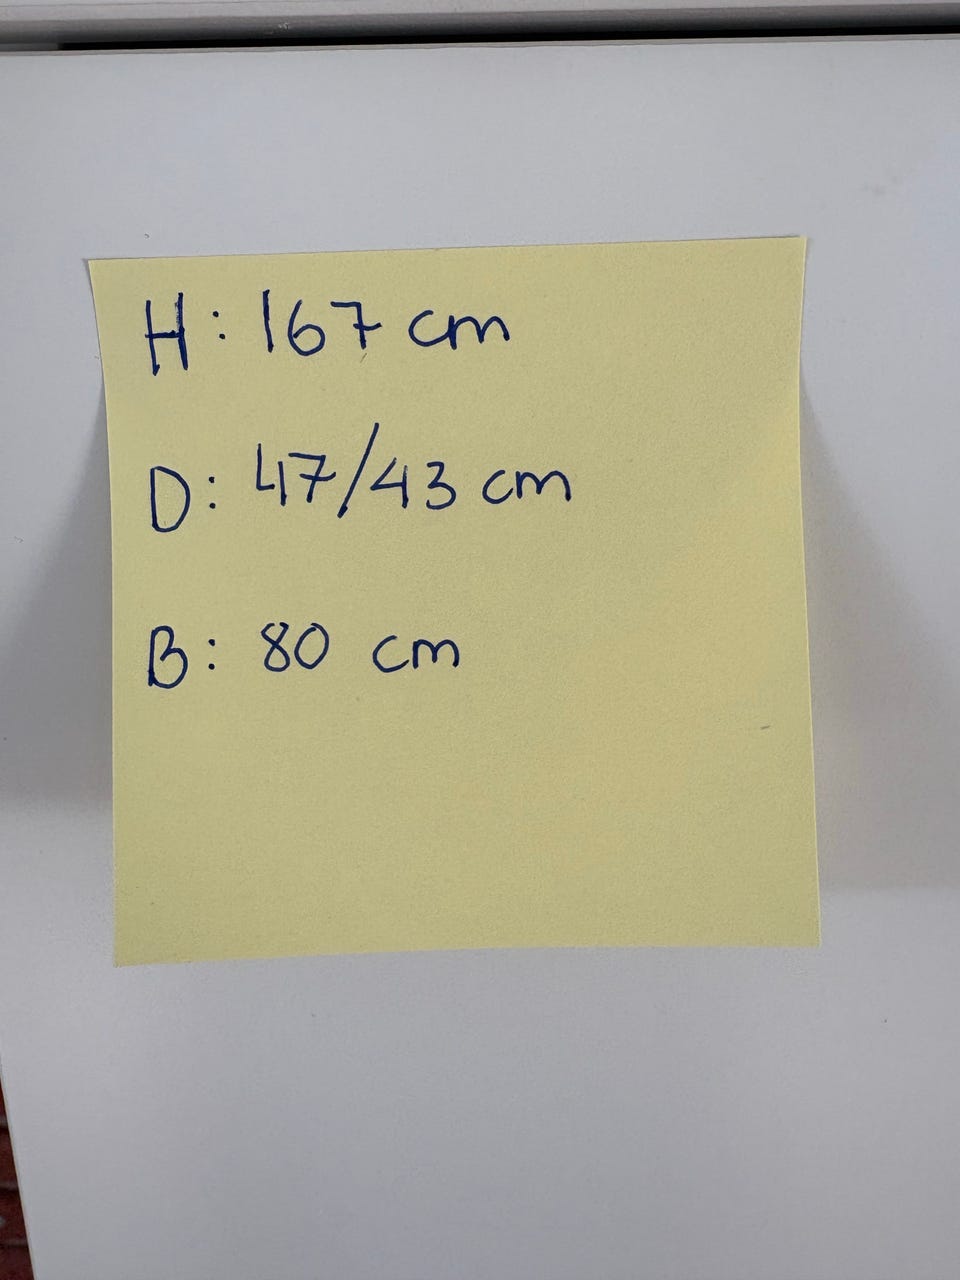 H: 167 cm
D: 47/43 cm
B: 80 cm